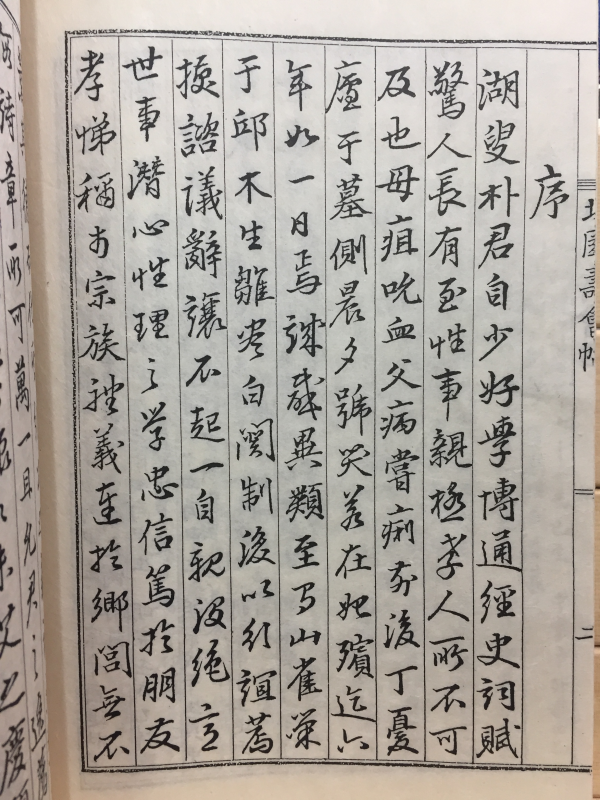 序
湖叟朴君自少好學博通經史詞賦
驚人長有至性事親極孝人所不可
及也母疽吮血父病嘗痢前後丁憂
廬于墓側晨夕號哭若在殯迄六
年如一日焉誠感異類至有山雀巢
于邱木生雛喪自闋制後以行誼薦
授諮議辭讓不起一自親沒絶意
世事潛心性理之学忠信篤於朋友
孝悌稱於宗族禮義達於鄉閭無不
壽會帖
二
詩章所可萬一耳